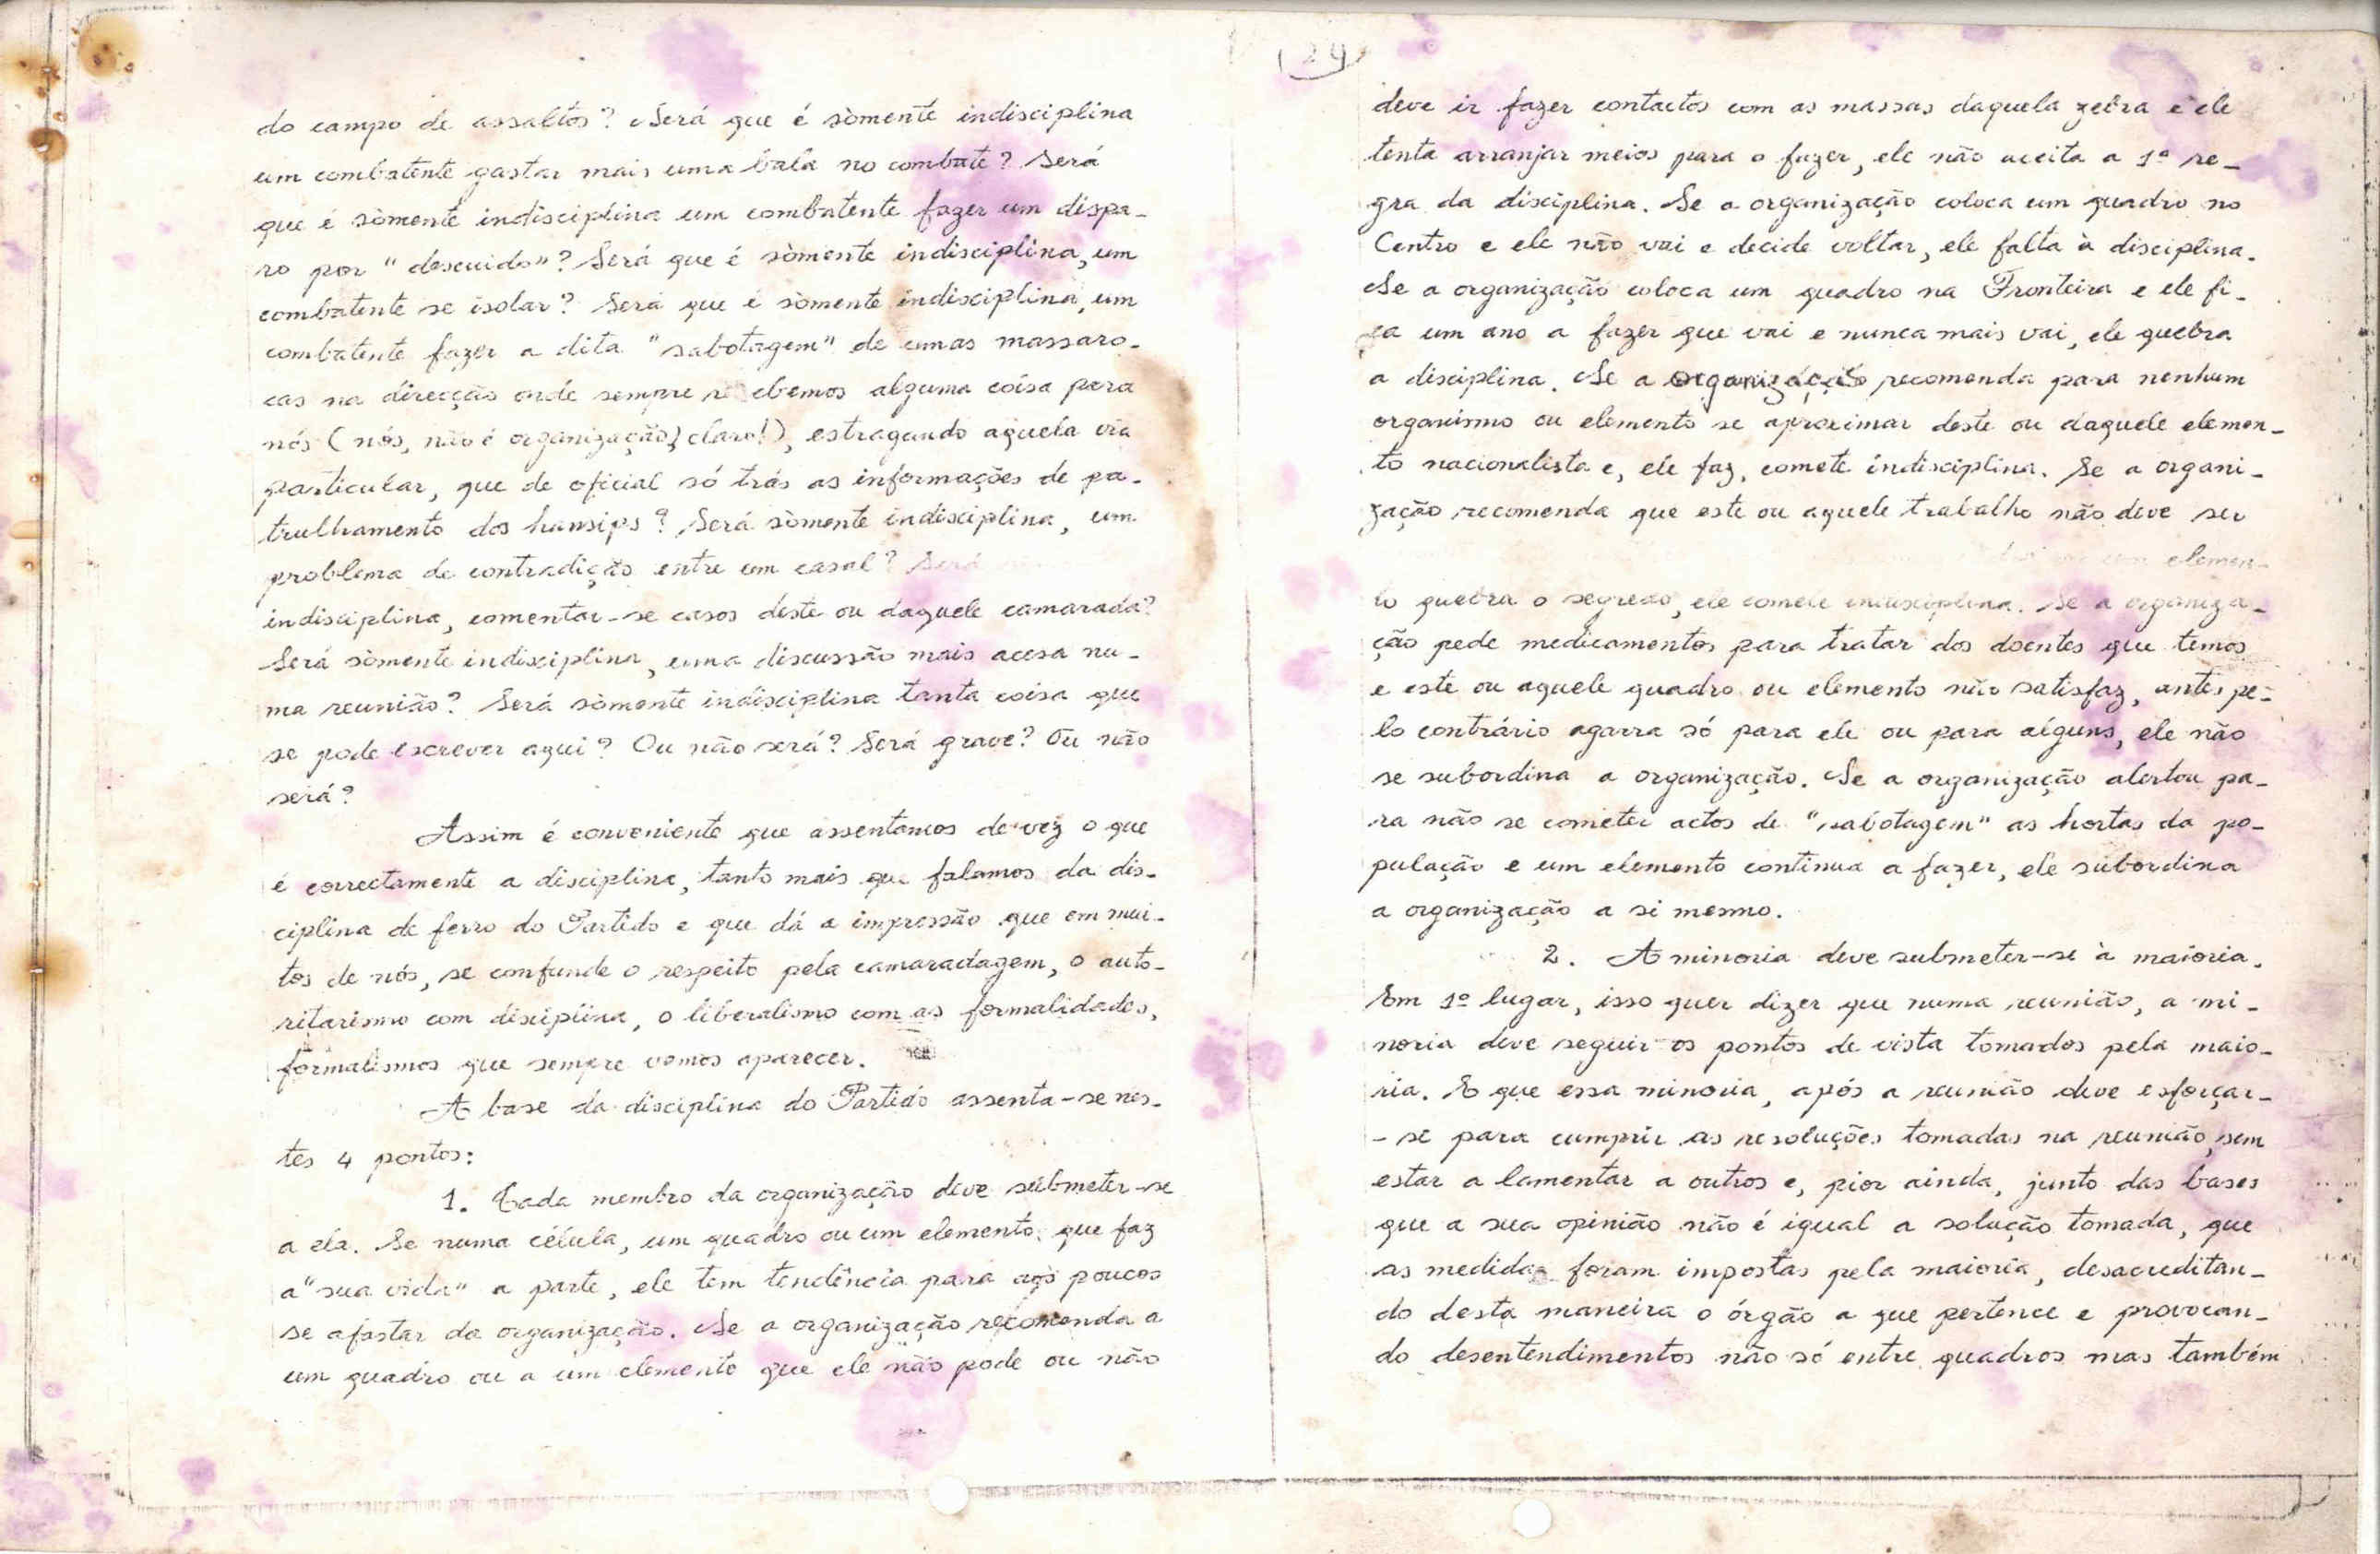 do campo de assaltos? Será que é sòmente indisciplina
um combatente gastar mais uma bala no combate? Será
que é sòmente indisciplina um combatente fazer um dispa-
ro por "descuido"? Será que é sòmente indisciplina, um
combatente se isolar? Será que é sòmente indisciplina, um
combatente fazer a dita "sabotagem" de umas massaro-
cas na direcção onde sempre recebemos alguma coisa para
nós (nós, não é organização, claro!), estragando aquela via
particular, que de oficial só trás as informações de pa-
trulhamento dos hansips? Será sòmente indisciplina, um
problema de contradição entre um casal? Será
indisciplina, comentar-se casos deste ou daquele camarada?
Será sòmente indisciplina, uma discussão mais acesa nu-
ma reunião? Será sòmente indisciplina tanta coisa que
se pode escrever aqui? Ou não será? Será grave? Ou não
será?
Assim é conveniente que assentamos de vez o que
é correctamente a disciplina, tanto mais que falamos da dis-
ciplina de ferro do Partido e que dá a impressão que em mui-
tos de nós, se confunde o respeito pela camaradagem, o auto-
ritarismo com disciplina, o liberalismo com as formalidades,
formalismos que sempre vemos aparecer.
A base da disciplina do Partido assenta-se nes-
tes 4 pontos:
1. Cada membro da organização deve submeter-se
a ela. Se numa célula, um quadro ou um elemento que faz
a "sua vida" a parte, ele tem tendência para aos poucos
se afastar da organização. Se a organização recomenda a
um quadro ou a um elemento que ele não pode ou não
(24)
deve ir fazer contactos com as massas daquela zebra e ele
tenta arranjar meios para o fazer, ele não aceita a 1ª re-
gra da disciplina. Se a organização coloca um quadro no
Centro e ele não vai e decide voltar, ele falta à disciplina.
Se a organização coloca um quadro na Fronteira e ele fi-
ca um ano a fazer que vai e nunca mais vai, ele quebra
a disciplina. Se a organização recomenda para nenhum
organismo ou elemento se aproximar deste ou daquele elemen-
to nacionalista e, ele faz, comete indisciplina. Se a organi-
zação recomenda que este ou aquele trabalho não deve ser
um elemen-
to quebra o segredo, ele comete indisciplina. Se a organiza-
ção pede medicamentos para tratar dos doentes que temos
e este ou aquele quadro ou elemento não satisfaz, antes pe-
lo contrário agarra só para ele ou para alguns, ele não
se subordina a organização. Se a organização alertou pa-
ra não se cometer actos de "sabotagem" as hortas da po-
pulação e um elemento continua a fazer, ele subordina
a organização a si mesmo.
2. A minoria deve submeter-se à maioria.
Em 1º lugar, isso quer dizer que numa reunião, a mi-
noria deve seguir os pontos de vista tomados pela maio-
ria. E que essa minoria, após a reunião deve esforçar-
-se para cumprir as resoluções tomadas na reunião, sem
estar a lamentar a outros e, pior ainda, junto das bases
que a sua opinião não é igual a solução tomada, que
as medidas foram impostas pela maioria, desacreditan-
do desta maneira o órgão a que pertence e provocan-
do desentendimentos não só entre quadros mas também